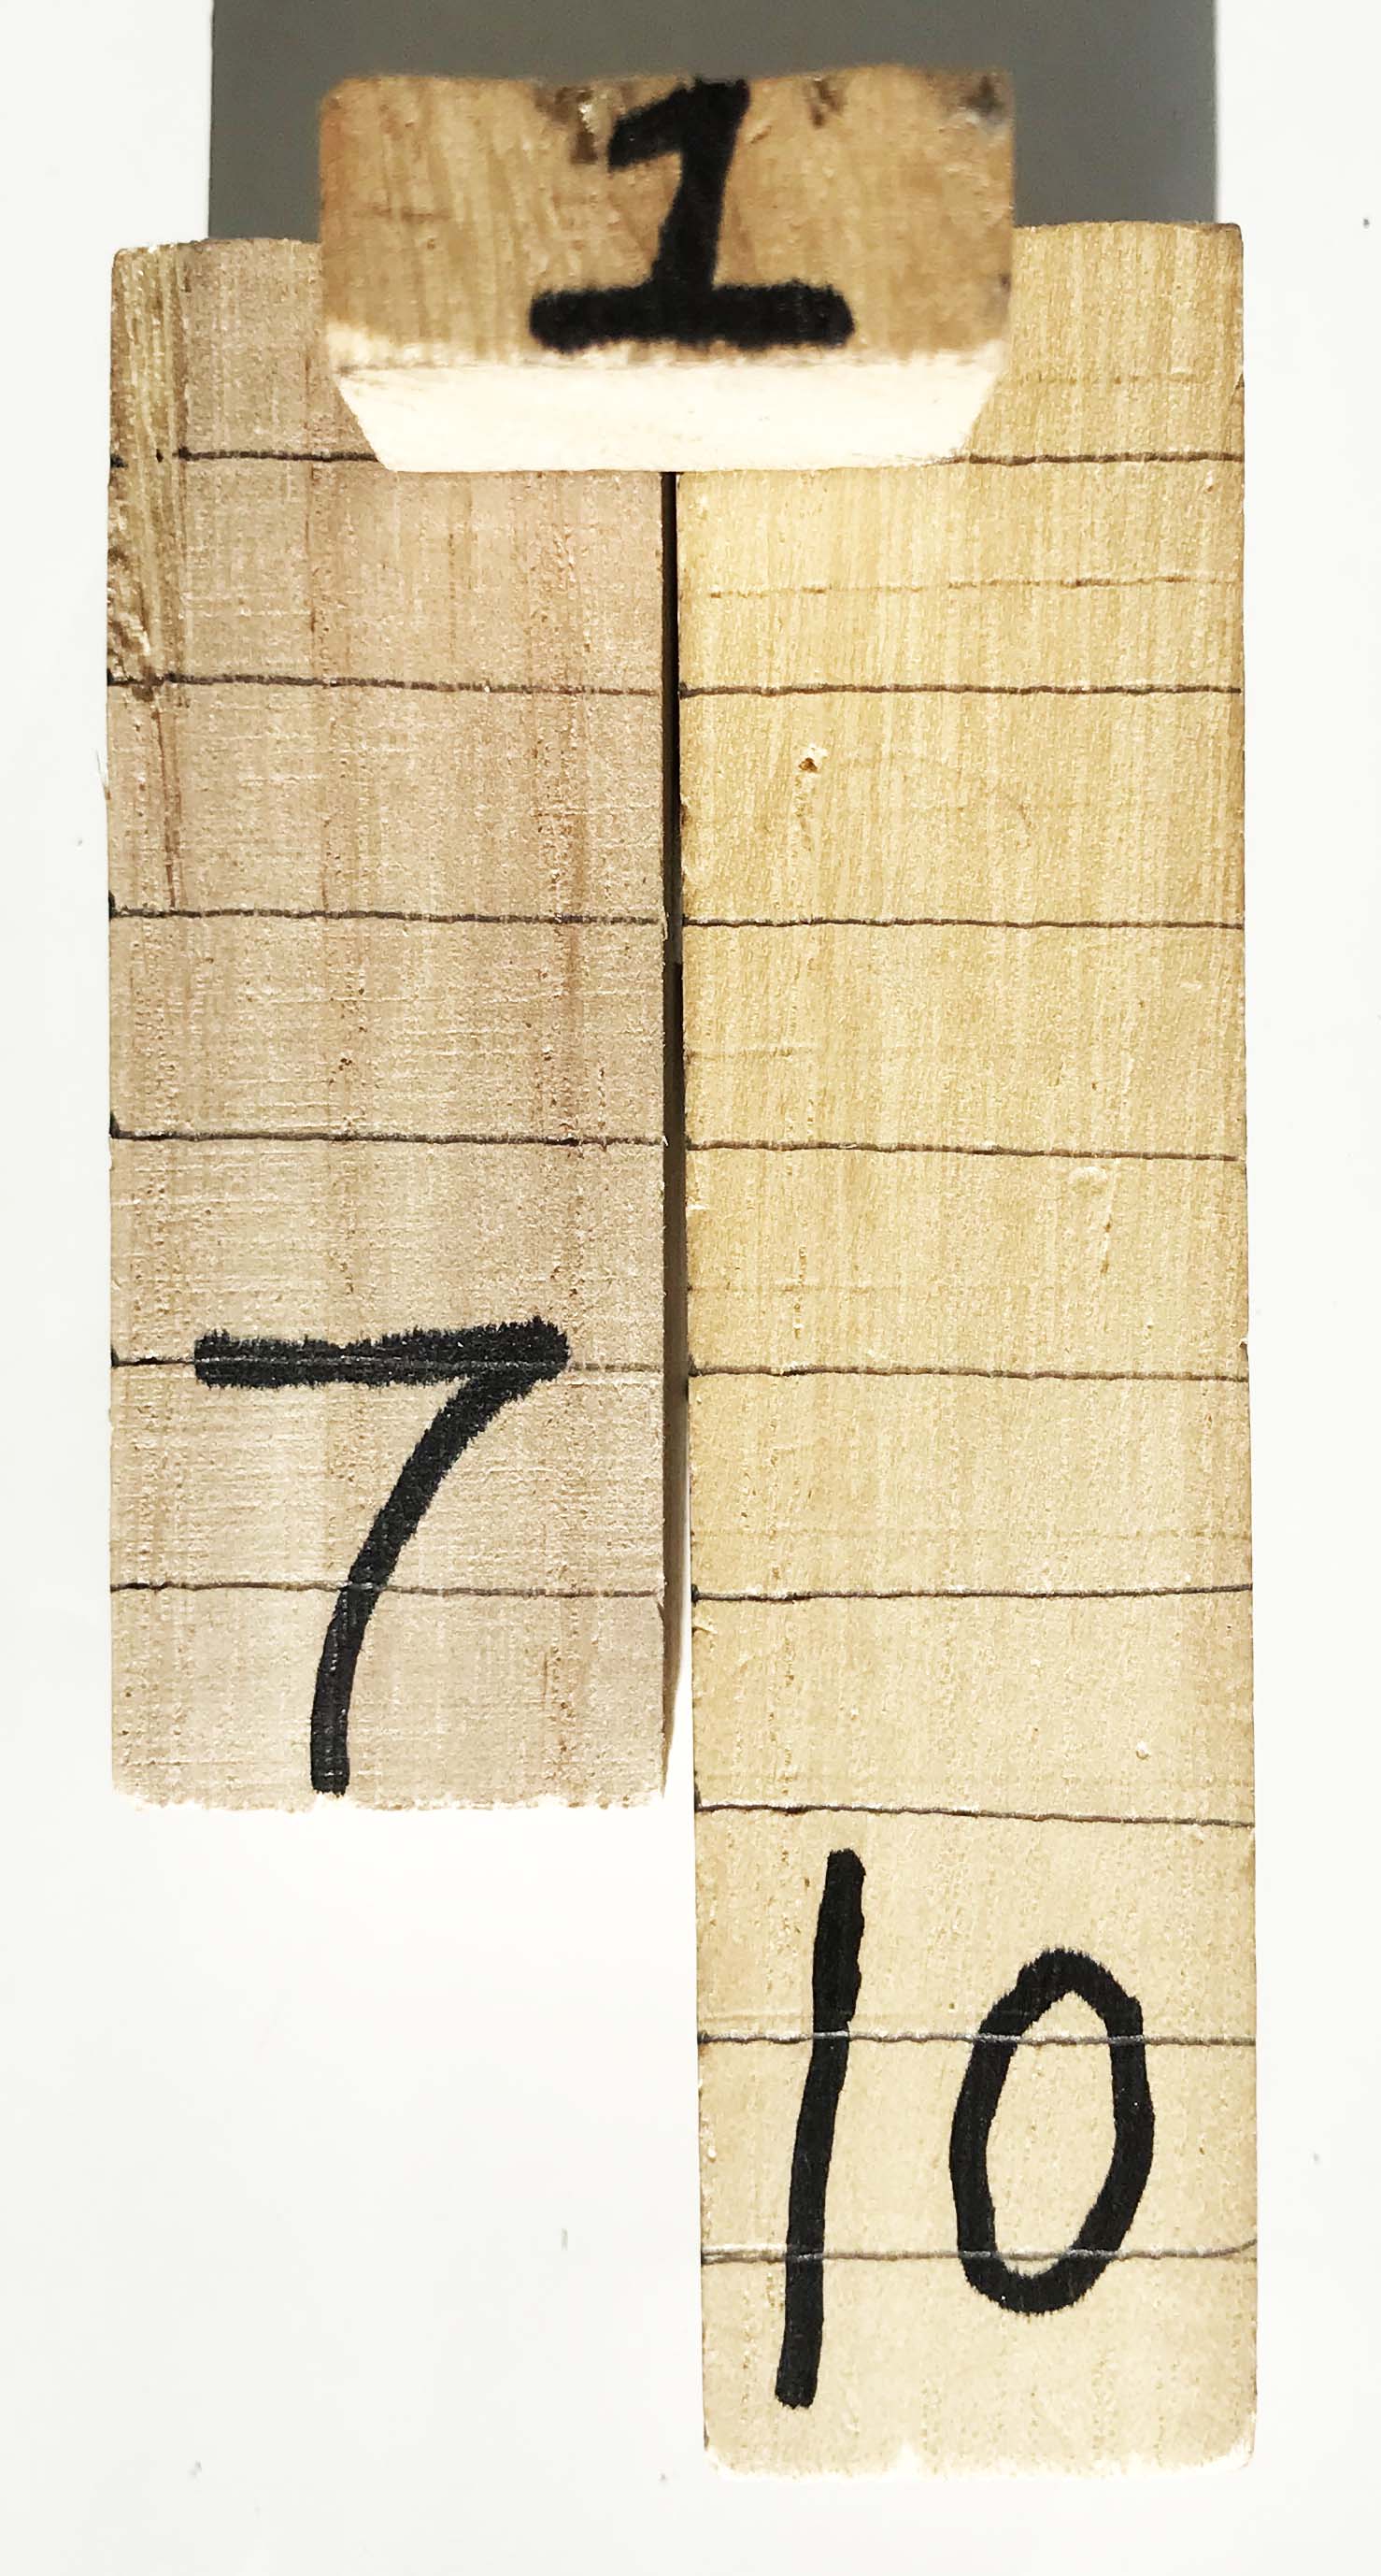 1
7
10